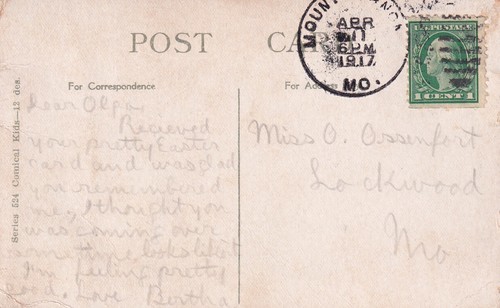 POST CA
MOUNT
APR
11
6 PM
1917
MO.
1 CENT 1
For Correspondence
For Ad
Series 524 Comical Kids—12 des.
Dear Olga,
Recieved
your pretty Easter
card and was glad
you remembered
me, I thought you
was coming over
sometime, looks like it
I'm feeling pretty
good. Love Bertha
Miss O. Ossenfort
Lockwood
Mo